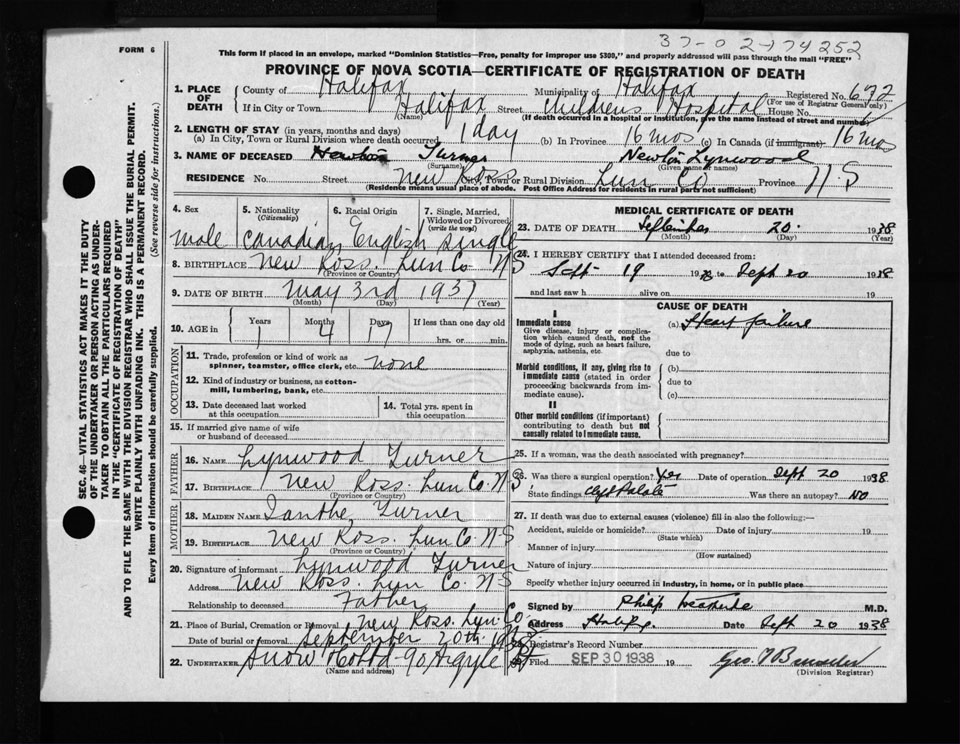 37-0 2-174252
FORM 6
This form if placed in an envelope, marked "Dominion Statistics—Free, penalty for improper use $300," and properly addressed will pass through the mail "FREE"
PROVINCE OF NOVA SCOTIA—CERTIFICATE OF REGISTRATION OF DEATH
1. PLACE OF DEATH County of Halifax Municipality of Halifax Registered No. 672
(For use of Registrar General only)
If in City or Town Halifax Street Childrens Hospital House No.
(Name) (If death occurred in a hospital or institution, give the name instead of street and number)
2. LENGTH OF STAY (in years, months and days)
(a) In City, Town or Rural Division where death occurred 1 day (b) In Province 16 mos (c) In Canada (if immigrant) 16 mos
3. NAME OF DECEASED Turner Newton Lynwood
(Surname) (Given name or names)
RESIDENCE No. Street New Ross City, Town or Rural Division Lun Co Province N-S
(Residence means usual place of abode. Post Office Address for residents in rural parts not sufficient)
SEC. 46—VITAL STATISTICS ACT MAKES IT THE DUTY
OF THE UNDERTAKER OR PERSON ACTING AS UNDER-
TAKER TO OBTAIN ALL THE PARTICULARS REQUIRED
IN THE "CERTIFICATE OF REGISTRATION OF DEATH"
AND TO FILE THE SAME WITH THE DIVISION REGISTRAR WHO SHALL ISSUE THE BURIAL PERMIT.
WRITE PLAINLY WITH UNFADING INK. THIS IS A PERMANENT RECORD.
Every item of information should be carefully supplied. (See reverse side for instructions.)
4. Sex 5. Nationality (Citizenship) 6. Racial Origin 7. Single, Married, Widowed or Divorced (write the word)
male Canadian English single
8. BIRTHPLACE New Ross. Lun Co N S
(Province or Country)
9. DATE OF BIRTH May 3rd 1937
(Month) (Day) (Year)
10. AGE in Years Months Days If less than one day old
1 4 17 hrs. or min.
OCCUPATION
11. Trade, profession or kind of work as
spinner, teamster, office clerk, etc. none
12. Kind of industry or business, as cotton-
mill, lumbering, bank, etc.
13. Date deceased last worked at this occupation
14. Total yrs. spent in this occupation
15. If married give name of wife
or husband of deceased
FATHER
16. NAME Lynwood Turner
17. BIRTHPLACE New Ross. Lun Co. N S
(Province or Country)
MOTHER
18. MAIDEN NAME Ianthe Turner
19. BIRTHPLACE New Ross. Lun Co. N-S
(Province or Country)
20. Signature of informant Lynwood Turner
Address New Ross. Lun Co. N S
Relationship to deceased Father
21. Place of Burial, Cremation or Removal New Ross. Lun. Co.
Date of burial or removal September 20th 1938
22. UNDERTAKER Snow 90 Argyle St
(Name and address)
MEDICAL CERTIFICATE OF DEATH
23. DATE OF DEATH September 20. 1938
(Month) (Day) (Year)
24. I HEREBY CERTIFY that I attended deceased from:
Sept 19 1938 to Sept 20 1938
and last saw h alive on 19
CAUSE OF DEATH
I
Immediate cause (a) Heart failure
Give disease, injury or complica-
tion which caused death, not the
mode of dying, such as heart failure,
asphyxia, asthenia, etc.
due to
Morbid conditions, if any, giving rise to
immediate cause (stated in order
proceeding backwards from im-
mediate cause).
(b)
due to
(c)
II
Other morbid conditions (if important)
contributing to death but not
causally related to immediate cause.
25. If a woman, was the death associated with pregnancy?
26. Was there a surgical operation? Yes Date of operation Sept 20 1938
State findings Cleft Palate Was there an autopsy? No
27. If death was due to external causes (violence) fill in also the following:—
Accident, suicide or homicide? Date of injury 19
(State which)
Manner of injury
(How sustained)
Nature of injury
Specify whether injury occurred in industry, in home, or in public place
Signed by Philip M.D.
Address Date Sept 20 1938
28. Registrar's Record Number
Filed SEP 30 1938 19 Geo.
(Division Registrar)